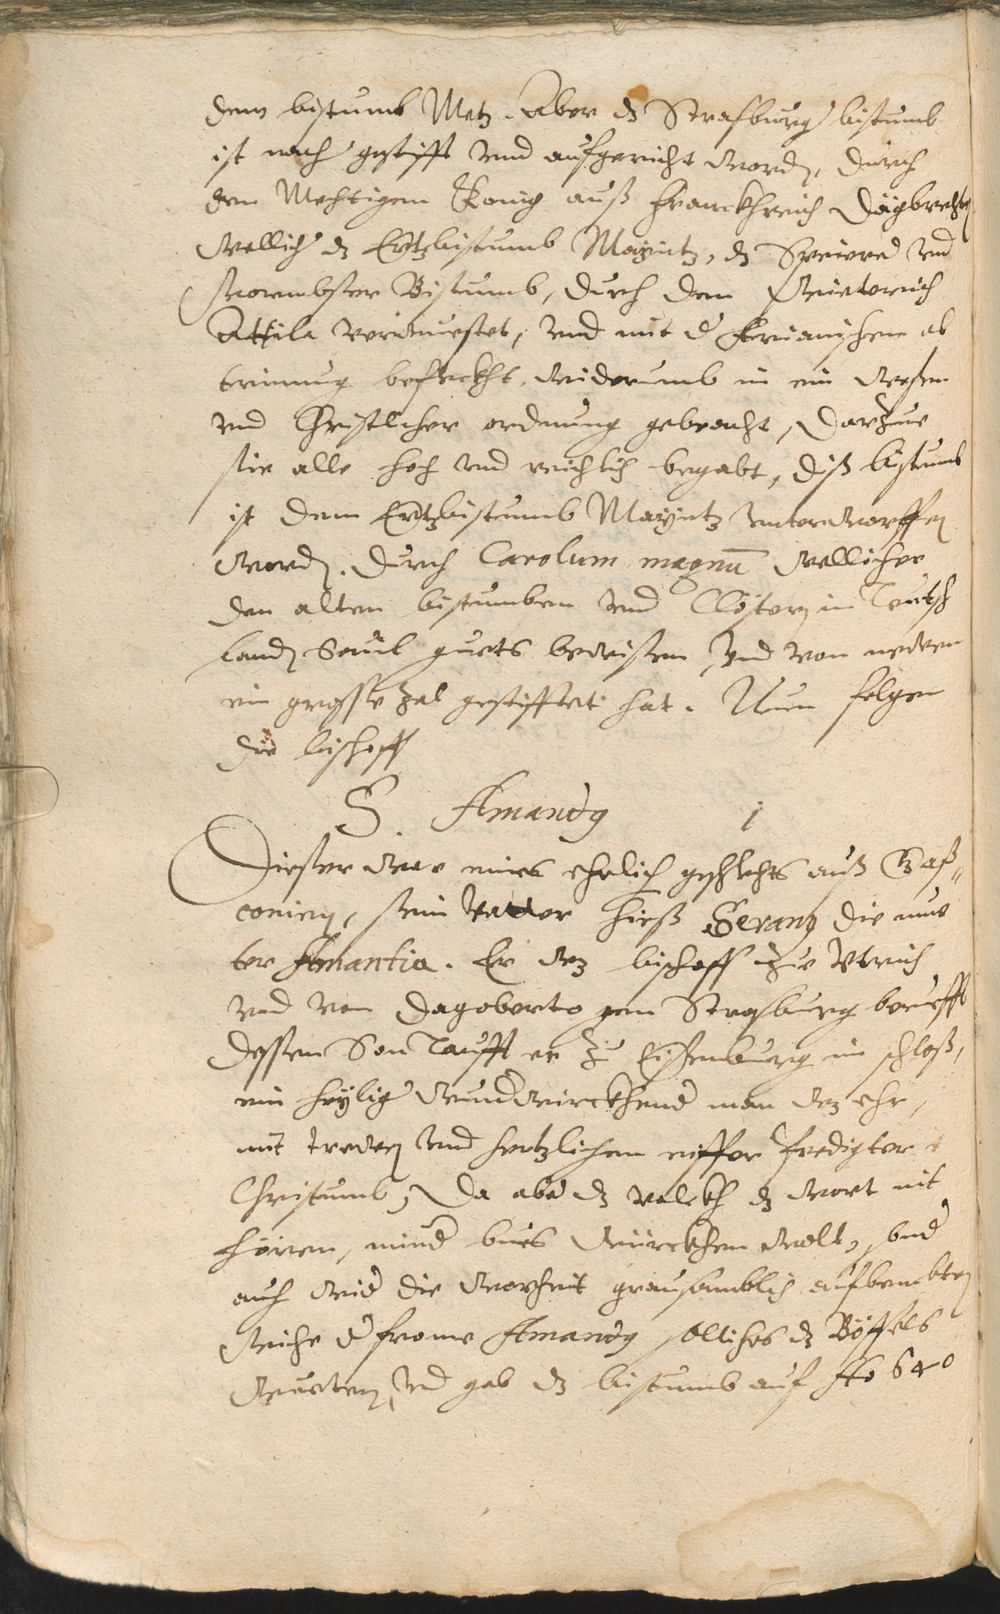 dem bistumb Metz. Aber dz Strasburg bistumb
ist nach gestifft vnd aufgericht word. durch
den Mechtigen König auß Franckhreich Dagbrecht
wellich dz Ertzbistumb Mayntz, dz Speirer vnd
Wormbser Bistumb, durch den Wieterich
Attila verwuestet, vnd mit d Arrianischen ab
trinnung befleckht, widerumb in ein wesen
vnd Christlicher ordnung gebracht, Darzue
sie alle hoch vnd reichlich begabt, diß bistumb
ist dem Ertzbistumb Mayntz vnterworffen
word. durch Carolum magnū wellicher
den alten bistumben vnd Clöster in Teutsch
landt souil guets bewisen vnd von newen
ein grosse zal gestifftet hat. Nun folgen
die bischoff
S. Amandg 1
Dieser war eines ehrlich geschlechts auß Gaß„
conien, sein vatter hieß Serang die mue
ter Amantia. Er wz bischoff zue Vtrich
vnd von Dagoberto gen Strasburg berufft
dessen Son Taufft er zu Eisenburg im schloß,
ein heylig wundwirckhend man wz ehr,
mit trewen vnd hertzlichem eiffer predigter
Christumb, Da aber dz volckh dz wort nit
hören, mind bues würckhen wolt, sond
auch wid die warheit grausamblich aufbembten
wiche d frome Amandg solliches dz Böffels
wueten, vnd gab dz bistumb auf Ao 640